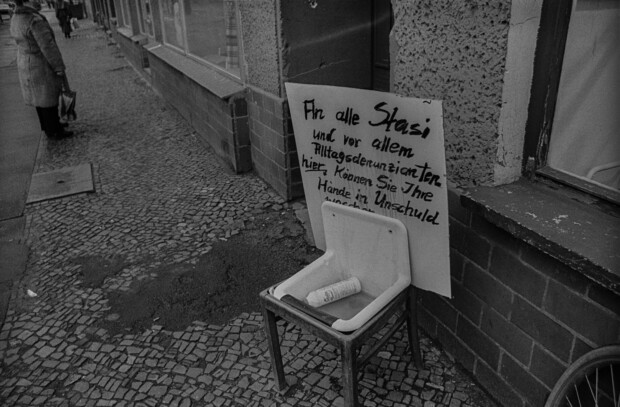 An alle Stasi
und vor allem
Alltagsdenunzianten
hier, Können Sie Ihre
Hände in Unschuld
waschen